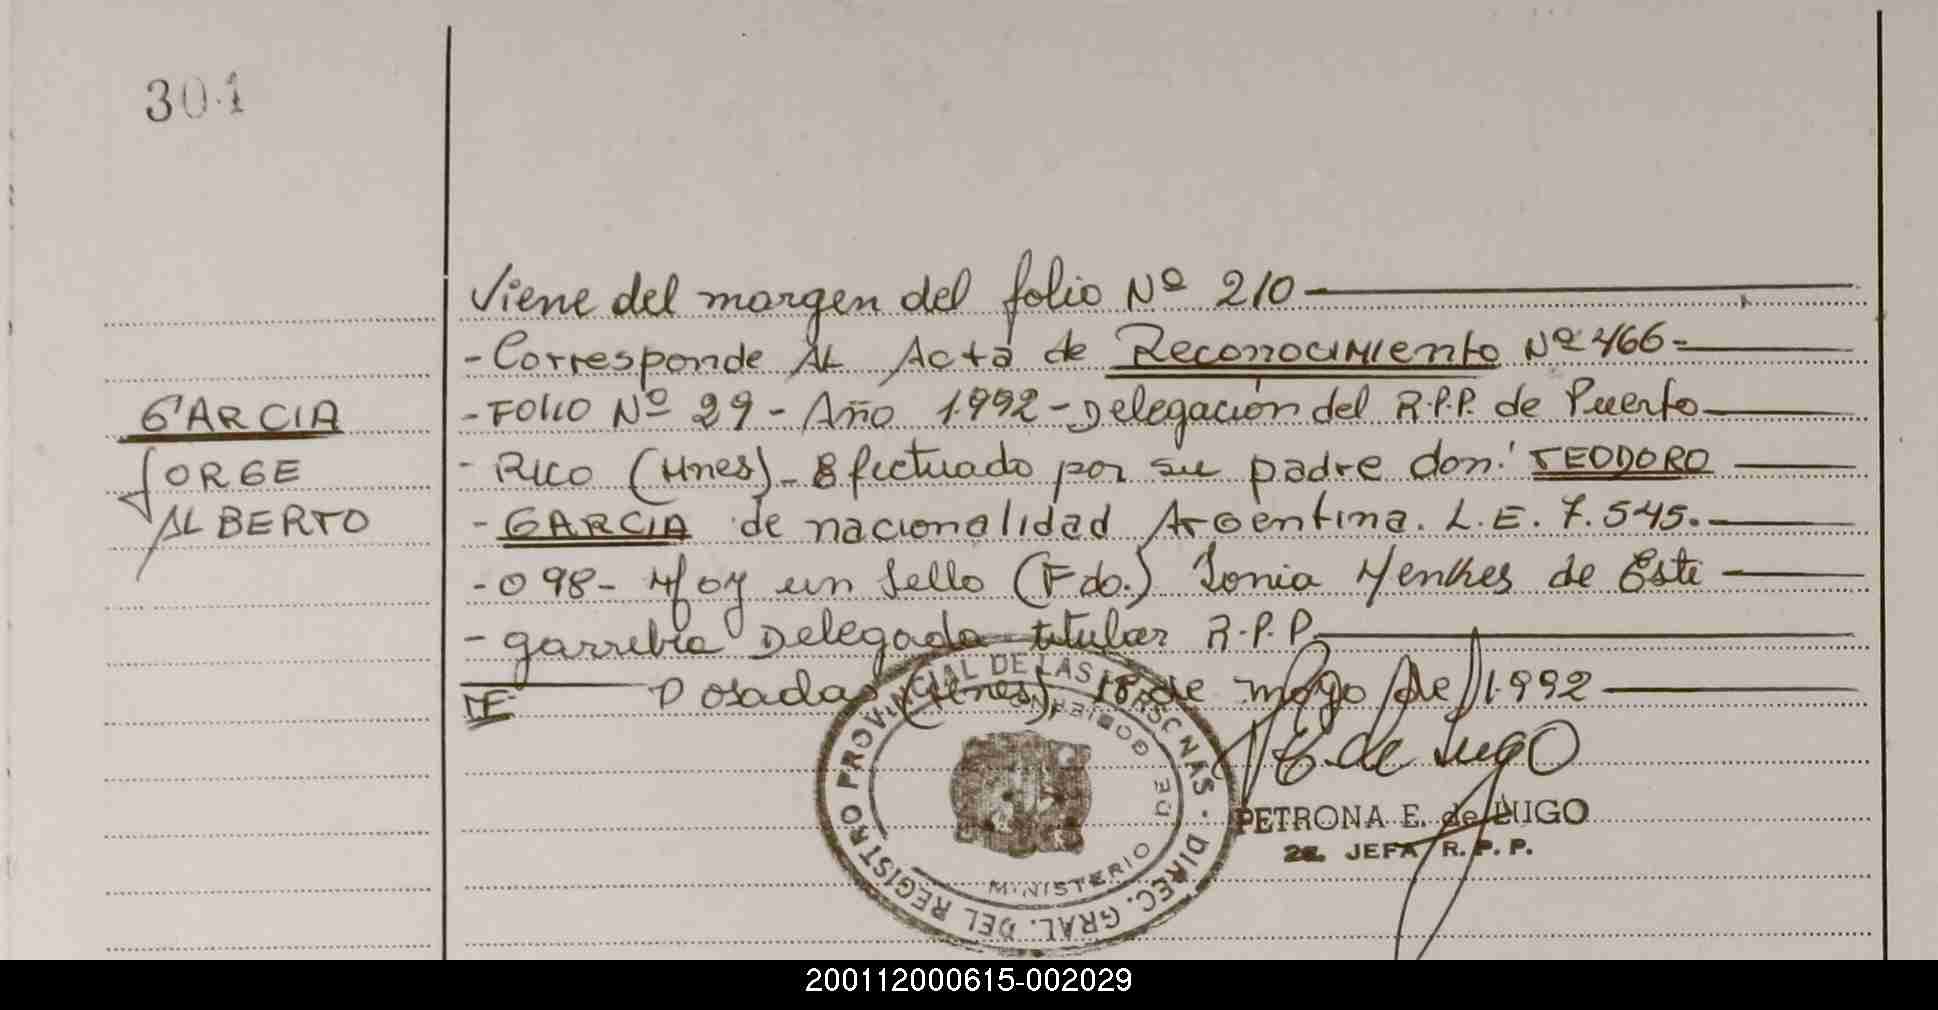 301
GARCIA
JORGE
ALBERTO
Viene del margen del folio Nº 210
- Corresponde AL Acta de Reconocimiento Nº 466-
- FOLIO Nº 29 - Año 1.992 - Delegación del R.P.P. de Puerto
- RICO (Mnes) - Efectuado por su padre don: TEODORO
- GARCIA de nacionalidad Argentina. L.E. 7.545.
- 098 - Hay un sello (Fdo.) Sonia Menkes de Este
- garribia Delegada titular R.P.P.
Posadas (Mnes), 18 de mayo de 1.992
E. de Lugo
PETRONA E. de LUGO
2a. JEFA R. P. P.
DIREC. GRAL. DEL REGISTRO PROVINCIAL DE LAS PERSONAS
MINISTERIO DE GOBIERNO
200112000615-002029